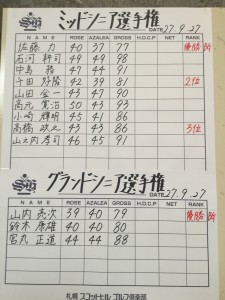 ミッドシニア選手権
DATE 27.9.27
NAME ROSE AZALEA GROSS H.D.C.P NET RANK
佐藤 力 40 37 77 優勝
石河 耕司 49 49 98
中島 務 47 44 91
千田 好隆 42 39 81 2位
山田 金一 43 47 90
高元 寛治 50 43 93
小崎 輝明 45 41 86
高橋 43 43 86 3位
山之内 孝司 46 45 91
グランドシニア選手権
DATE 27.9.27
NAME ROSE AZALEA GROSS H.D.C.P NET RANK
山内 亮次 39 40 79 優勝
鈴木 康雄 40 40 80
宮丸 正道 44 44 88
札幌スコットヒルゴルフ倶楽部